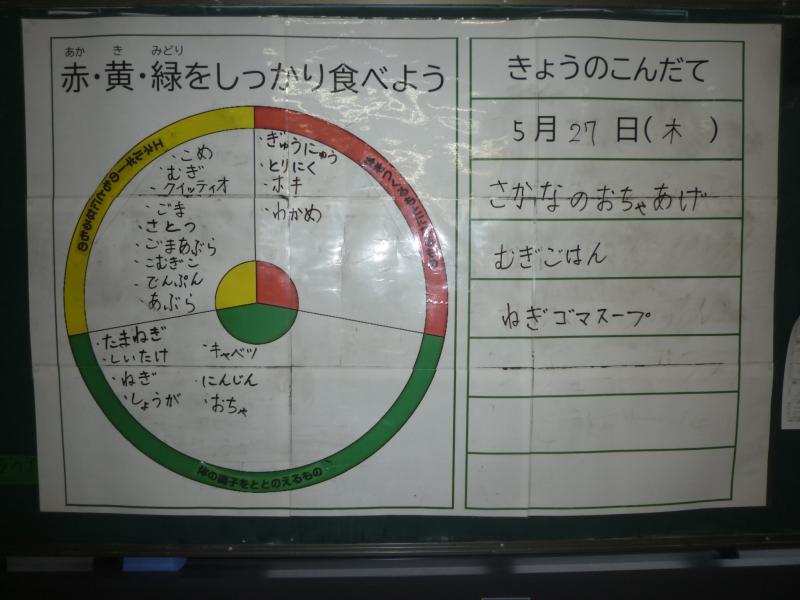 あか き みどり
赤・黄・緑をしっかり食べよう
エネルギーのもとになるもの
・こめ
むぎ
・クイッティオ
・ごま
・さとつ
・ごまあぶら
・こむぎこ
・でんぷん
・あぶら
・ぎゅうにゅう
・とりにく
・ホキ
・わかめ
体をつくるもとになるもの
・たまねぎ
・しいたけ
・ねぎ
・しょうが
・キャベツ
・にんじん
・おちゃ
体の調子をととのえるもの
きょうのこんだて
5月27日(木)
さかなのおちゃあげ
むぎごはん
ねぎゴマスープ